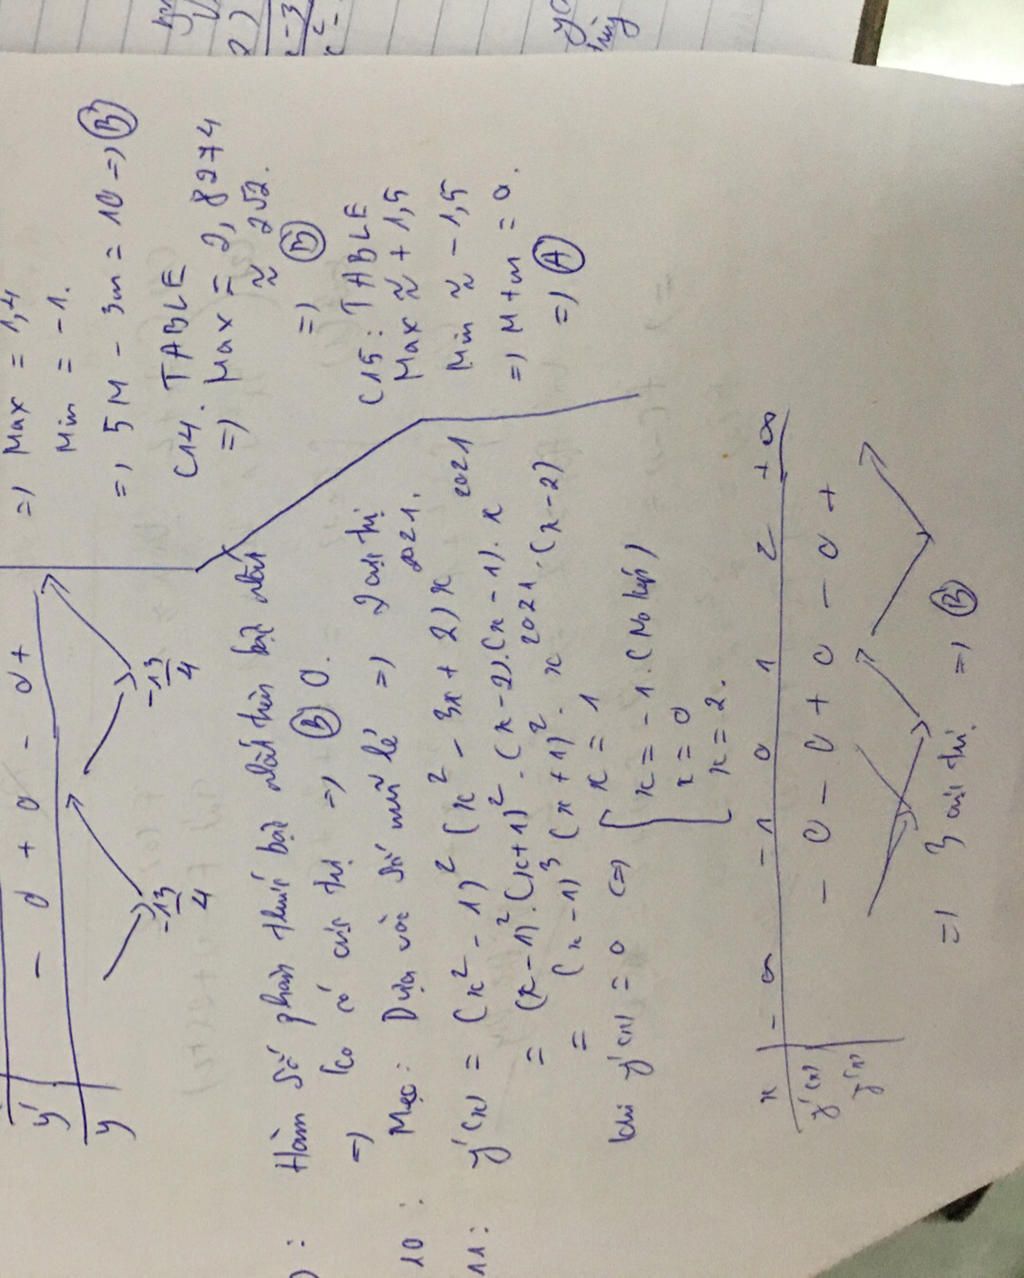 =) Max = 1,4
Min = -1.
=) 5M - 3m = 10 =) (B)
C14. TABLE
=) Max = 2,8274
≈ 2√2.
=) (B)
C15: TABLE
Max ≈ +1,5
Min ≈ -1,5
=) M+m = 0.
=) (A)
y' - 0 + 0 - 0 +
y
-13/4 -13/4
Hàm số phân thức bậc nhất trên bậc nhất
=) ko có cực trị =) (B) 0.
10: Mẹo: Dựa vào số mũ lẻ =) 2 cực trị
2021.
11: y'(x) = (x² - 1)² (x² - 3x + 2) x²⁰²¹
= (x-1)². (x+1)². (x-2).(x-1). x
= (x-1)³ (x+1)². x²⁰²¹. (x-2)
khi y'(x) = 0 (=)
x = 1
x = -1. (No kép)
x = 0
x = 2.
x -∞ -1 0 1 2 +∞
y'(x) - 0 - 0 + 0 - 0 +
y(x)
=) 3 cực trị. =) (B)